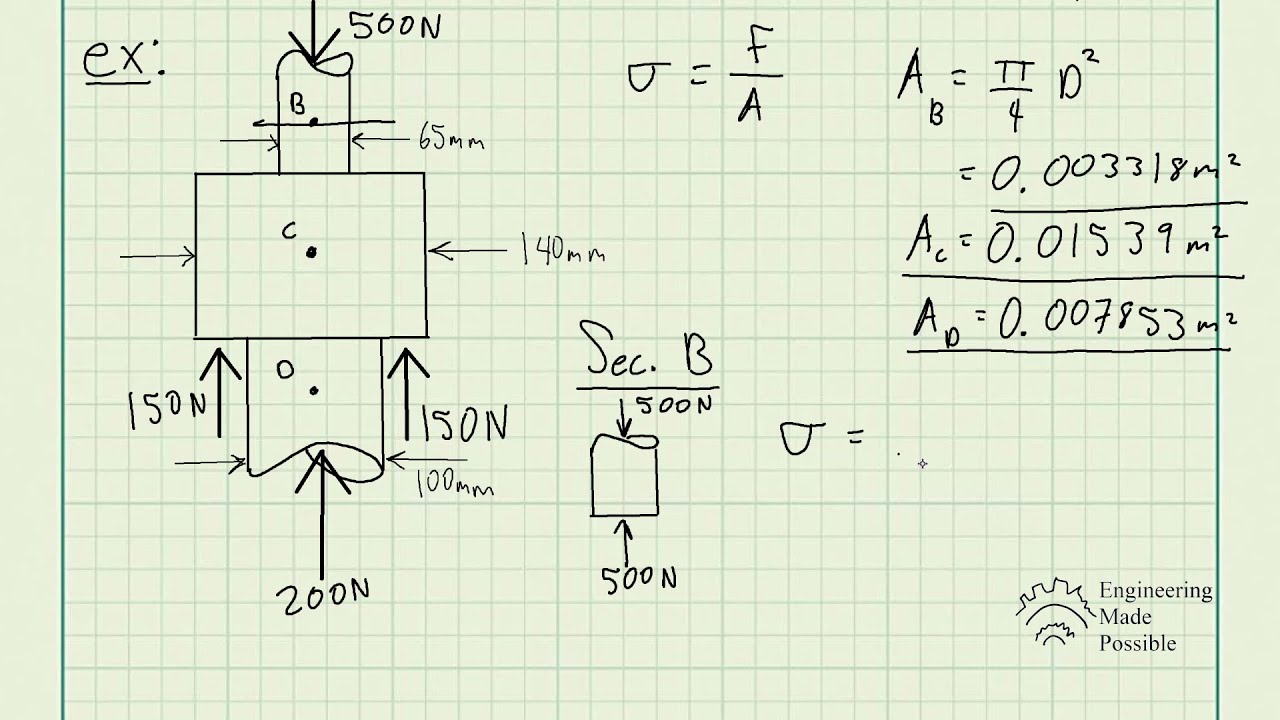 ex:
500N
B
65mm
C
140mm
D
150N
150N
100mm
200N
σ = F/A
A_B = π/4 D²
= 0.003318 m²
A_C = 0.01539 m²
A_D = 0.007853 m²
Sec. B
500N
500N
σ =
Engineering
Made
Possible